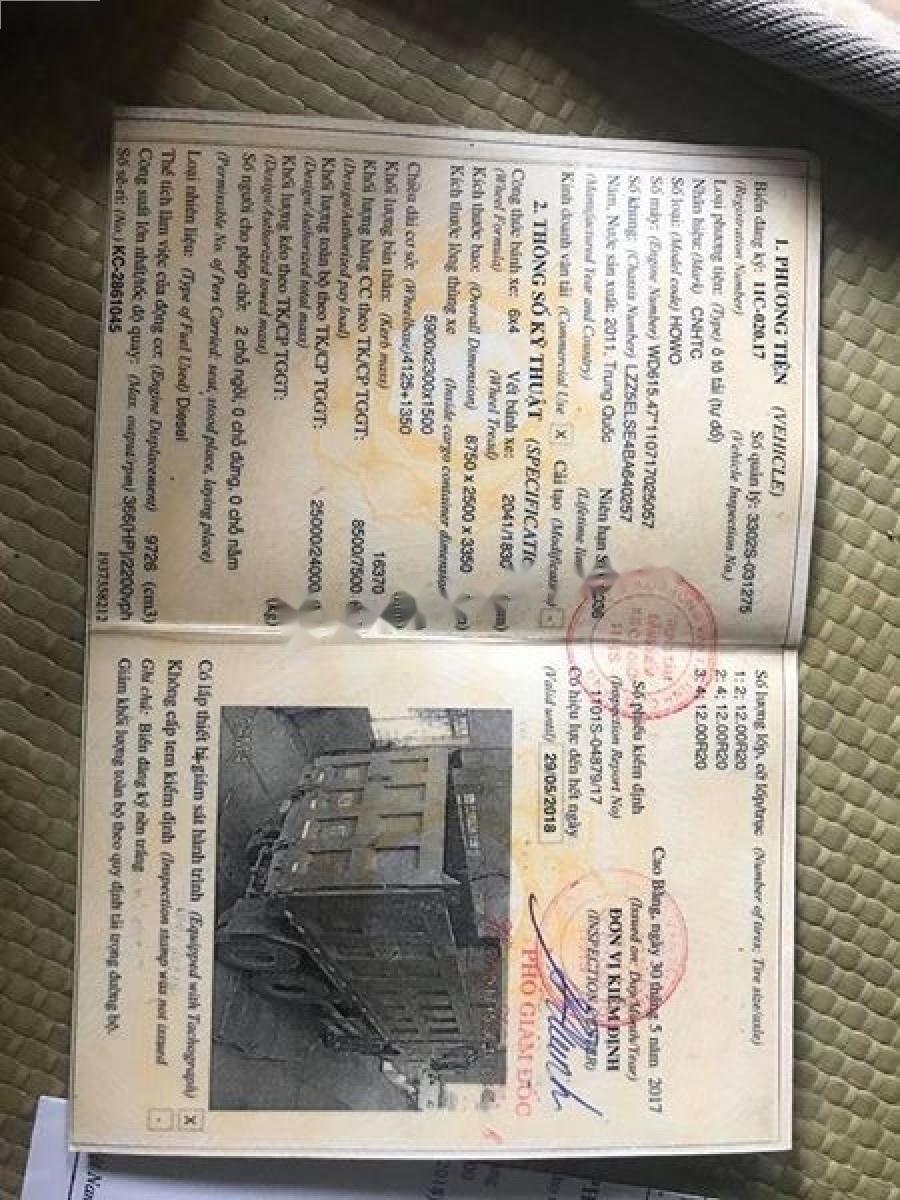 1. PHƯƠNG TIỆN (VEHICLE)
Biển đăng ký: 11C-020.17 Số quản lý: 3302S-031275
(Registration Number) (Vehicle Inspection No.)
Loại phương tiện: (Type) ô tô tải (tự đổ)
Nhãn hiệu: (Mark) CNHTC
Số loại: (Model code) HOWO
Số máy: (Engine Number) WD615.47*110717025057
Số khung: (Chassis Number) LZZ5ELSE4BA640257
Năm, Nước sản xuất: 2011, Trung Quốc Niên hạn
(Manufactured Year and Country) (Lifetime
Kinh doanh vận tải (Commercial Use) X Cải tạo (Modification) -
2. THÔNG SỐ KỸ THUẬT
Công thức bánh xe: 6x4 Vết bánh xe: 2041/1830
(Wheel Formula) (Wheel Tread)
Kích thước bao: (Overall Dimension) 8750 x 2500 x 3350
Kích thước lòng thùng xe (Inside cargo container dimension)
5900x2300x1500
Chiều dài cơ sở: (Wheelbase) 4125+1350
Khối lượng bản thân: (Kerb mass) 16370
Khối lượng hàng CC theo TK/CP TGGT: 8500/7500
(Design/Authorized pay load)
Khối lượng toàn bộ theo TK/CP TGGT: 25000/24000
(Design/Authorized total mass)
Khối lượng kéo theo TK/CP TGGT: (kg)
(Design/Authorized towed mass)
Số người cho phép chở: 2 chỗ ngồi, 0 chỗ đứng, 0 chỗ nằm
(Permissible No. of Pers Carried: seat, stood place, laying place)
Loại nhiên liệu: (Type of Fuel Used) Diesel
Thể tích làm việc của động cơ: (Engine Displacement) 9726 (cm3)
Công suất lớn nhất/tốc độ quay: (Max. output/rpm) 366(HP)/2200vph
Số sê-ri: (No.) KC-2861045 1937338212
Số lượng lốp, cỡ lốp/trục (Number of tires; Tire size/axle)
1: 2; 12.00R20
2: 4; 12.00R20
3: 4; 12.00R20
Cao Bằng, ngày 30 tháng 5 năm 2017
(Issued on: Day/Month/Year)
Số phiếu kiểm định ĐƠN VỊ KIỂM ĐỊNH
(Inspection Report No)
1101S-04879/17
Có hiệu lực đến hết ngày
(Valid until) 29/05/2018
PHÓ GIÁM ĐỐC
Có lắp thiết bị giám sát hành trình (Equipped with Tachograph) X
Không cấp tem kiểm định (Inspection stamp was not issued) -
Ghi chú: Biển đăng ký nền trắng
Giảm khối lượng toàn bộ theo quy định tải trọng đường bộ.